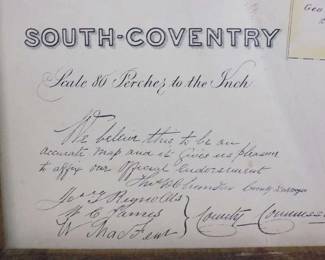 Geo
SOUTH-COVENTRY
Scale 80 Perches to the Inch
We believe this to be an
accurate map and it gives us pleasure
to affix our official endorsement
County Surveyor
Reynolds
County Commiss